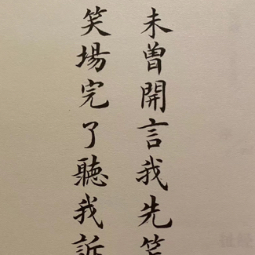 未曾開言我先笑
笑場完了聽我訴